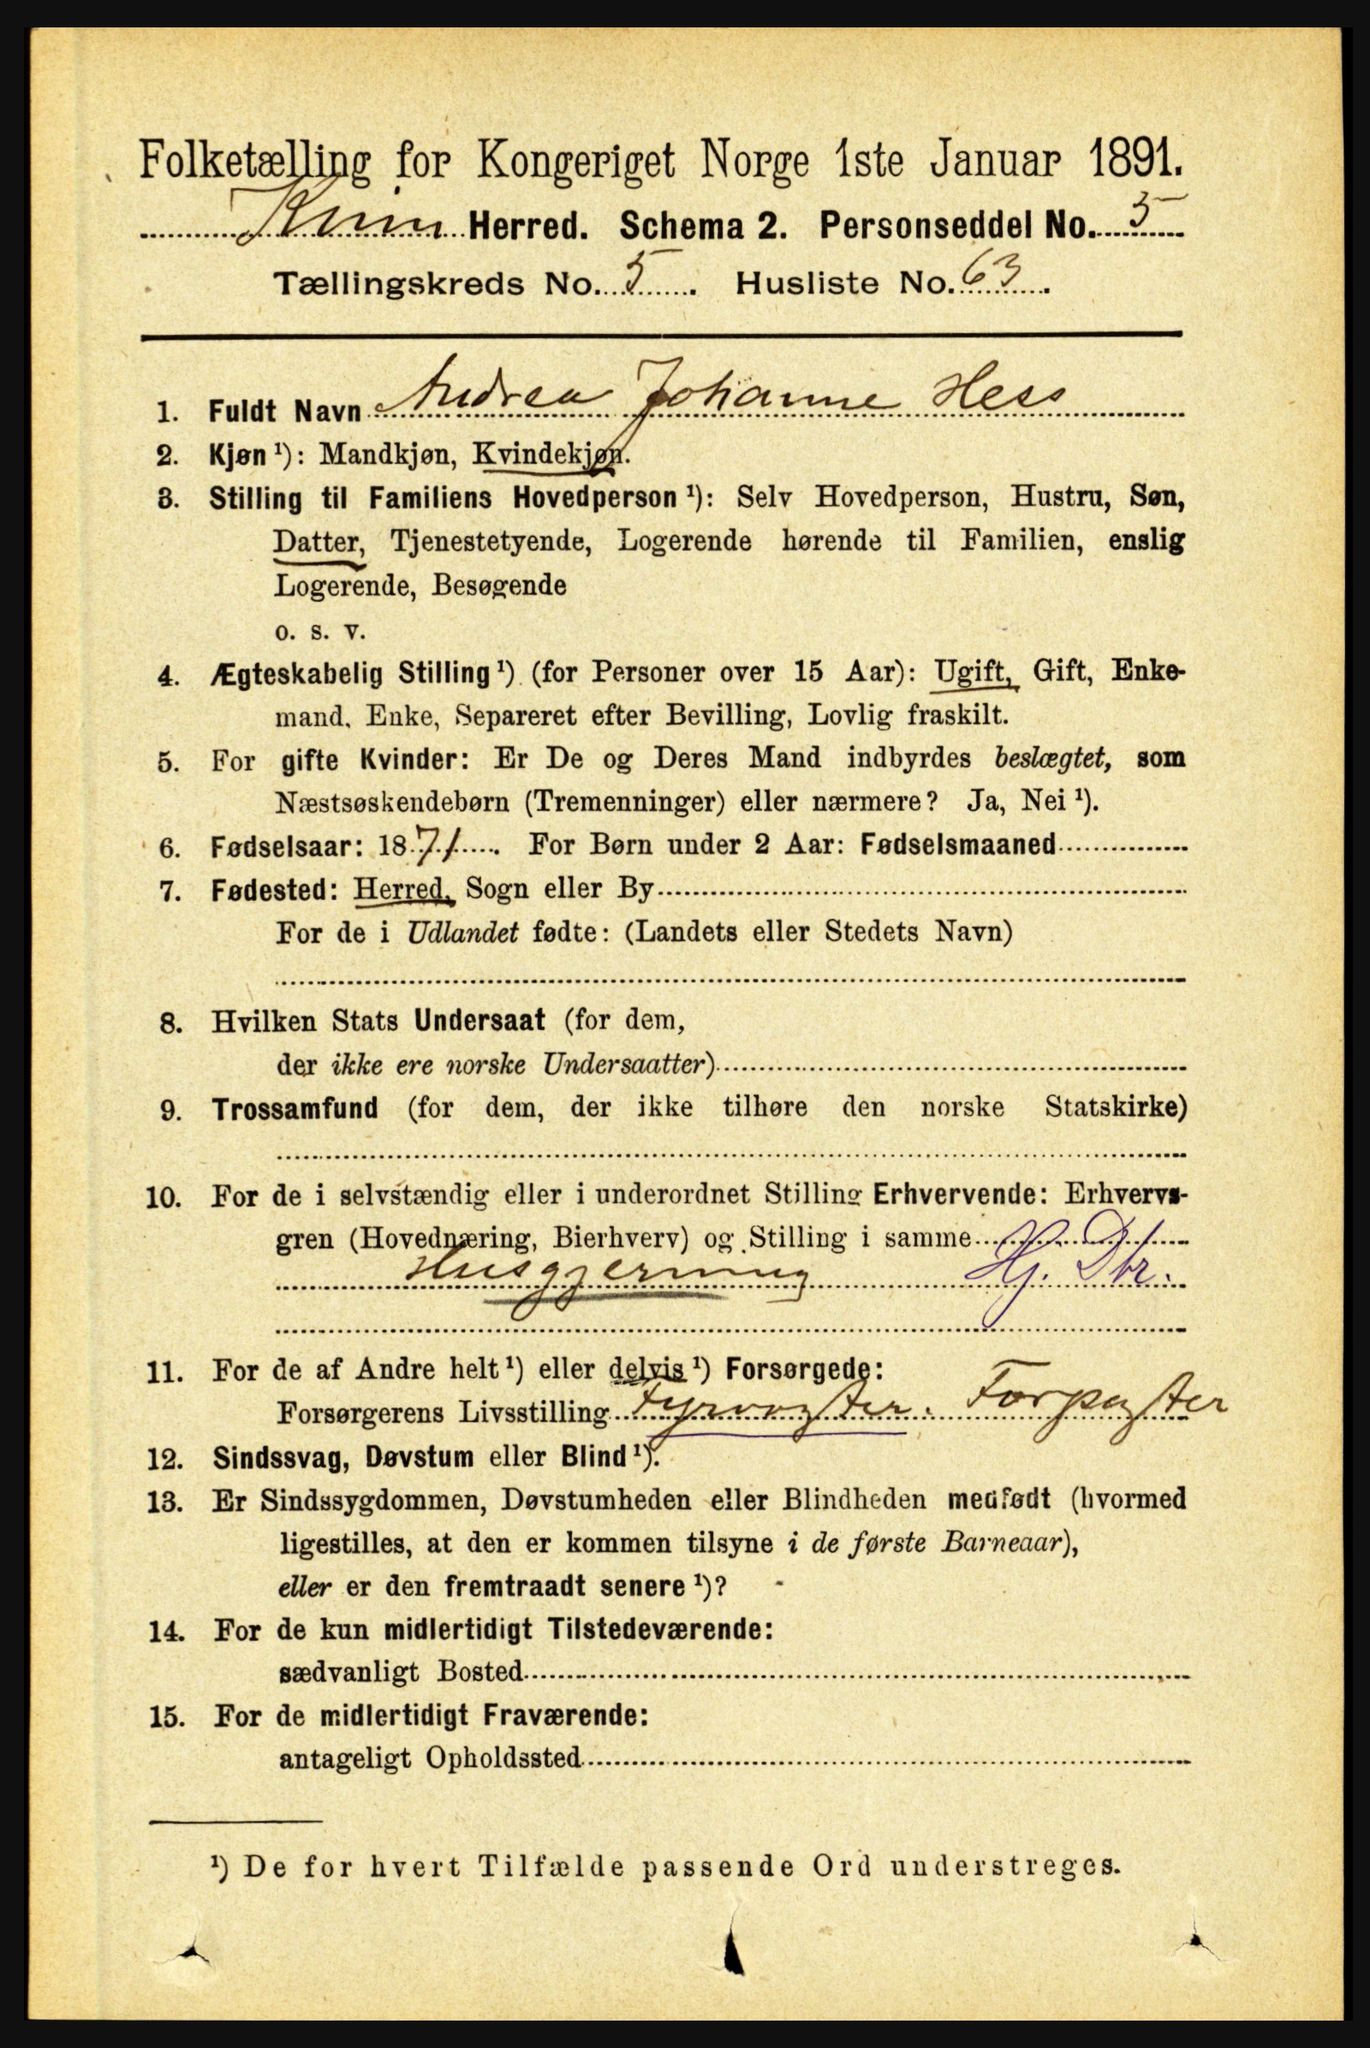 Folketælling for Kongeriget Norge 1ste Januar 1891.
Kinn Herred. Schema 2. Personseddel No. 5
Tællingskreds No. 5. Husliste No. 63.
1. Fuldt Navn Andrea Johanne Hess
2. Kjøn ¹): Mandkjøn, Kvindekjøn.
3. Stilling til Familiens Hovedperson ¹): Selv Hovedperson, Hustru, Søn,
Datter, Tjenestetyende, Logerende hørende til Familien, enslig
Logerende, Besøgende
o. s. v.
4. Ægteskabelig Stilling ¹) (for Personer over 15 Aar): Ugift, Gift, Enke-
mand, Enke, Separeret efter Bevilling, Lovlig fraskilt.
5. For gifte Kvinder: Er De og Deres Mand indbyrdes beslægtet, som
Næstsøskendebørn (Tremenninger) eller nærmere? Ja, Nei ¹).
6. Fødselsaar: 1871. For Børn under 2 Aar: Fødselsmaaned
7. Fødested: Herred, Sogn eller By
For de i Udlandet fødte: (Landets eller Stedets Navn)
8. Hvilken Stats Undersaat (for dem,
der ikke ere norske Undersaatter)
9. Trossamfund (for dem, der ikke tilhøre den norske Statskirke)
10. For de i selvstændig eller i underordnet Stilling Erhvervende: Erhvervs-
gren (Hovednæring, Bierhverv) og Stilling i samme
Husgjerning Hj. Dtr.
11. For de af Andre helt ¹) eller delvis ¹) Forsørgede:
Forsørgerens Livsstilling Fyrvogter. Forpagter
12. Sindssvag, Døvstum eller Blind ¹).
13. Er Sindssygdommen, Døvstumheden eller Blindheden medfødt (hvormed
ligestilles, at den er kommen tilsyne i de første Barneaar),
eller er den fremtraadt senere ¹)?
14. For de kun midlertidigt Tilstedeværende:
sædvanligt Bosted
15. For de midlertidigt Fraværende:
antageligt Opholdssted
¹) De for hvert Tilfælde passende Ord understreges.